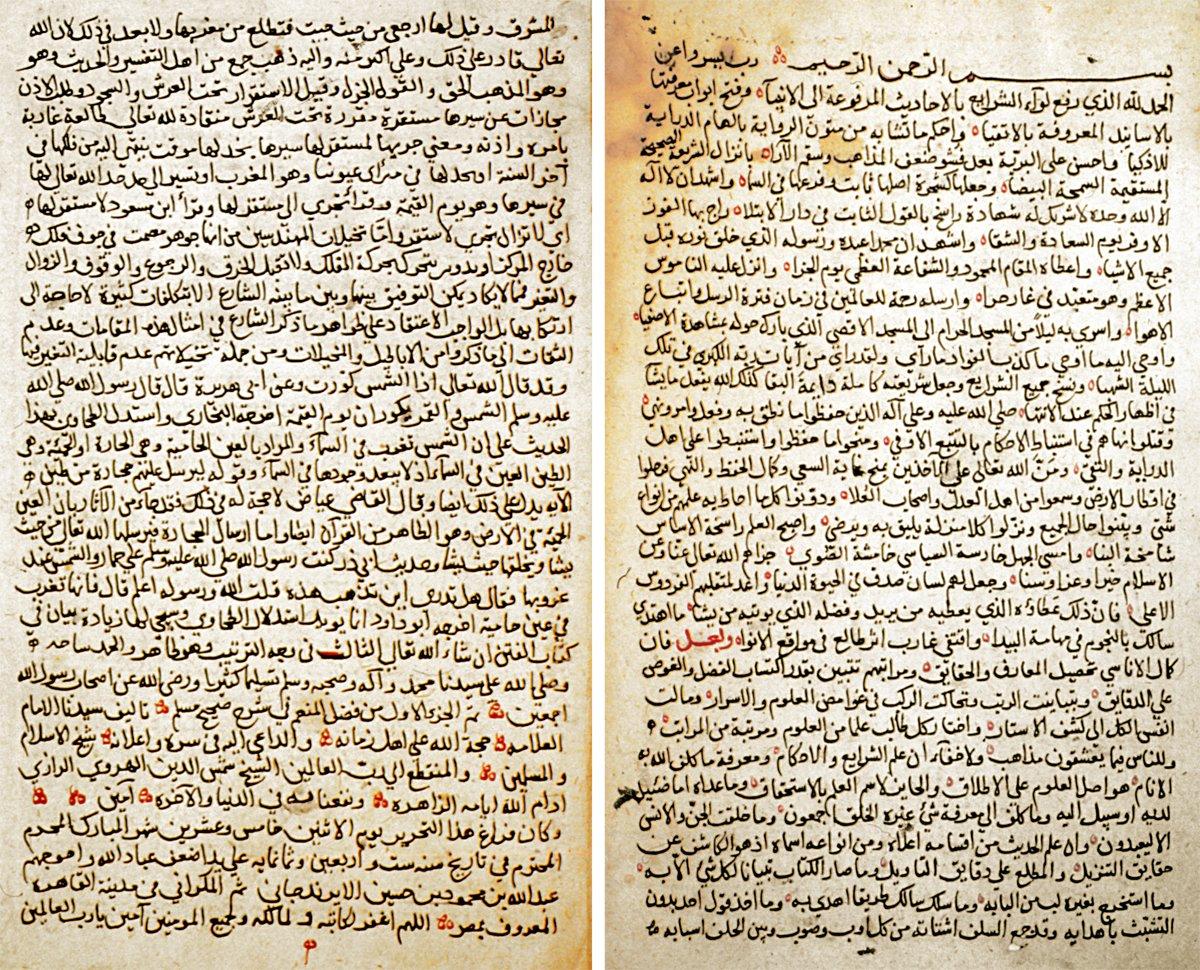 بسم الله الرحمن الرحيم رب يسر واعن
الحمد لله الذي رفع لواء الشرايع بالاحاديث المرفوعة الى الانبياء وفتح ابواب معرفتها
بالاسانيد المعروفة بالاتقياء واحكم ما تشابه من متون الرواية بالهام الدراية
للاذكياء واحسن على البرية بعد فشو ضعف المذاهب وسقم الآراء بانزال الشريعة الصحيحة
المستقيمة السمحة البيضاء وجعلها كشجرة اصلها ثابت وفرعها في السماء واشهد ان لا اله
الا الله وحده لا شريك له شهادة راسخ بالقول الثابت في دار الابتلاء راج بها الفوز
الاوفر يوم السعادة والشقاء واشهد ان محمدا عبده ورسوله الذي خلق نوره قبل
جميع الاشياء واعطاه المقام المحمود والشفاعة العظمى يوم الجزاء وانزل عليه الناموس
الاعظم وهو متعبد في غار حراء وارسله رحمة للعالمين في زمان فترة الرسل واتباع
الاهواء واسرى به ليلا من المسجد الحرام الى المسجد الاقصى الذي بارك حوله بمشاهدة الاصفياء
واوحى اليه ما اوحى ما كذب الفؤاد ما رأى ولقد راى من آيات ربه الكبرى في تلك
الليلة الشهباء ونسخ جميع الشرايع وجعل شريعته كاملة دايمة البقاء كذلك الله يفعل ما يشاء
في اظهار الحكم عند الانتهاء صلى الله عليه وعلى آله الذين حفظوا ما نطق به وفعل وامر ونهى
ونقلوا انباءهم في استنباط الاحكام بالتتبع الاوفى ومنحوا ما حفظوا واستنبطوا على اهل
الدراية والتقى ومن الله تعالى على الآخذين بمنح غاية السعي وكمال الحفظ والنهى فرحلوا
في اقطار الارض وسمعوا من اهل العدل واصحاب العلاء ودونوا كل ما احاط به علمهم من انواع
شتى وبينوا حال الجميع ونزلوا كلا منزلة يليق به ويرضى واصبح العلم راسخة الاساس
شامخة البناء وامسى الجهل دارسة الصياصي خامشة القصوى جزاهم الله تعالى عنا وعن
الاسلام خيرا وعزا وسناء وجعل لهم لسان صدق في الحيوة الدنيا واعد لمتقبلهم الفردوس
الاعلى فان ذلك عطاؤه الذي يعطيه من يريد وفضله الذي يوتيه من يشاء ما اهتدى
سالك بالنجوم في مهامه البيداء واقتفى غارب اثر طالع في مواقع الانواء وبعد فان
كمال الاناسي تحصيل المعارف والحقايق ومراتبهم تتبين بقدر اكتساب الفضل والغوص
على الدقايق وتباينت الرتب وتحاكت الركب في غوامض العلوم والاسرار ومالت
انفس الكل الى كشف الاستار واختار كل طالب علما من العلوم ومرتبة من المراتب
وللناس فيما يعشقون مذاهب ولا خفاء ان علم الشرايع والاحكام ومعرفة ما كلف الله به
الانام هو اصل العلوم على الاطلاق والحايز لاسم العلم بالاستحقاق وما عداه اما ضئيل
لديه او سبيل اليه وما كلف الى معرفة شئ غيره الخلق اجمعون وما خلقت الجن والانس
الا ليعبدون وان علم الحديث من اقسامه اعلاه ومن انواعه اسماه اذ هو الكاشف عن
حقايق التنزيل والمطلع على دقايق التاويل وما صار الكتاب تبيانا لكل شئ الا به
وما استخرج بغيره لب من البابه وما سلك سالك طريقا اهدى به وما اخذ قول احد بدون
التشبث باهدابه وقد جمع السلف اشتاته من كل اوب وصوب وبين الخلف اسبابه
المشرق وقيل لها ارجعي من حيث جيت فتطلع من مغربها ولا بعد في ذلك لان الله
تعالى قادر على ذلك وعلى اكثر منه واليه ذهب جمع من اهل التفسير والحديث وهو
وهو المذهب الحق والقول الجزل وقيل الاستقرار تحت العرش والسجود وطلب الاذن
مجازات عن سيرها مستقرة مقررة تحت العرش منقادة لله تعالى طالعة غاربة
بامره واذنه ومعنى جريها لمستقر لها سيرها بحد لها موقت ينتهى اليه من فلكها في
آخر السنة او بحد لها في مرآى عيوننا وهو المغرب او تسير الى حد حد الله تعالى لها
في سيرها وهو يوم القيمة وقد قرئ تجري الى مستقر لها وقرا ابن مسعود لا مستقر لها
اي لا تزال تجري لا تستقر واما تخيلات المهندسين من انها جوهر مصمت في جوف فلك
خارج المركز او تدوير يتحرك بحركة الفلك ولا تقبل الخرق والرجوع والوقوف والزوال
والتغير فمما لا يكاد يمكن التوفيق بينها وبين ما بينه الشارع الا بتكلفات كثيرة لا حاجة الى
ارتكابها بل الواجب الاعتقاد على ظواهر ما ذكر الشارع في امثال هذه المقامات وعدم
التفات الى ما ذكروا من الاباطيل والمخيلات ومن جملة تخيلاتهم عدم قابلية التغير فيها
وقد قال الله تعالى اذا الشمس كورت وعن ابي هريرة قال قال رسول الله صلى الله
عليه وسلم الشمس والقمر يكوران يوم القيمة اخرجه البخاري واستدل الطحاوي بهذا
الحديث على ان الشمس تغرب في السماء والمراد بالعين الحامية وهي الحارة او الحمئة وهي
الطين العين في السماء اذ لا يبعد وجودها في السماء وقوله ليرسل عليهم حجارة من طين
الآية يدل على ذلك ايضا وقال القاضي عياض لا حجة له في ذلك فقد جاء من الآثار بان العين
الحمية في الارض وهو الظاهر من القرآن ايضا واما ارسال الحجارة فيرسلها الله تعالى من حيث
يشاء ويخلقها حيث يشاء وحديث ابي ذر كنت رسول الله صلى الله عليه وسلم على حمار والشمس عند
غروبها فقال هل تدري اين تذهب هذه قلت الله ورسوله اعلم قال فانها تغرب
في عين حامية اخرجه ابو داود انما يويد استدلال الطحاوي وسيجي لها زيادة بيان في
كتاب الفتن ان شاء الله تعالى الثالث في وجه الترتيب وهو ظاهر والحمد
وصلى الله على سيدنا محمد وآله وصحبه وسلم تسليما كثيرا ورضي الله عن اصحاب رسول الله
اجمعين تم الجزء الاول من فضل المنعم في شرح صحيح مسلم تاليف سيدنا الامام
العلامة حجة الله على اهل زمانه والداعي اليه في سره واعلانه شيخ الاسلام
والمسلمين والمنقطع الى رب العالمين الشيخ شمس الدين الهروي الرازي
ادام الله ايامه الزاهرة ونفعنا به في الدنيا والآخرة آمين
وكان فراغ هذا التحرير يوم الاثنين خامس وعشرين شهر المبارك المحرم
المحترم في تاريخ سنه ست واربعين وثمانمايه على يد اضعف عباد الله واحوجهم
عبد الله بن محمود بن حسين الايرندجاني ثم المكراني في مدينة القاهرة
المعروف بمصر اللهم اغفر لكاتبه ولمالكه ولجميع المومنين آمين يا رب العالمين